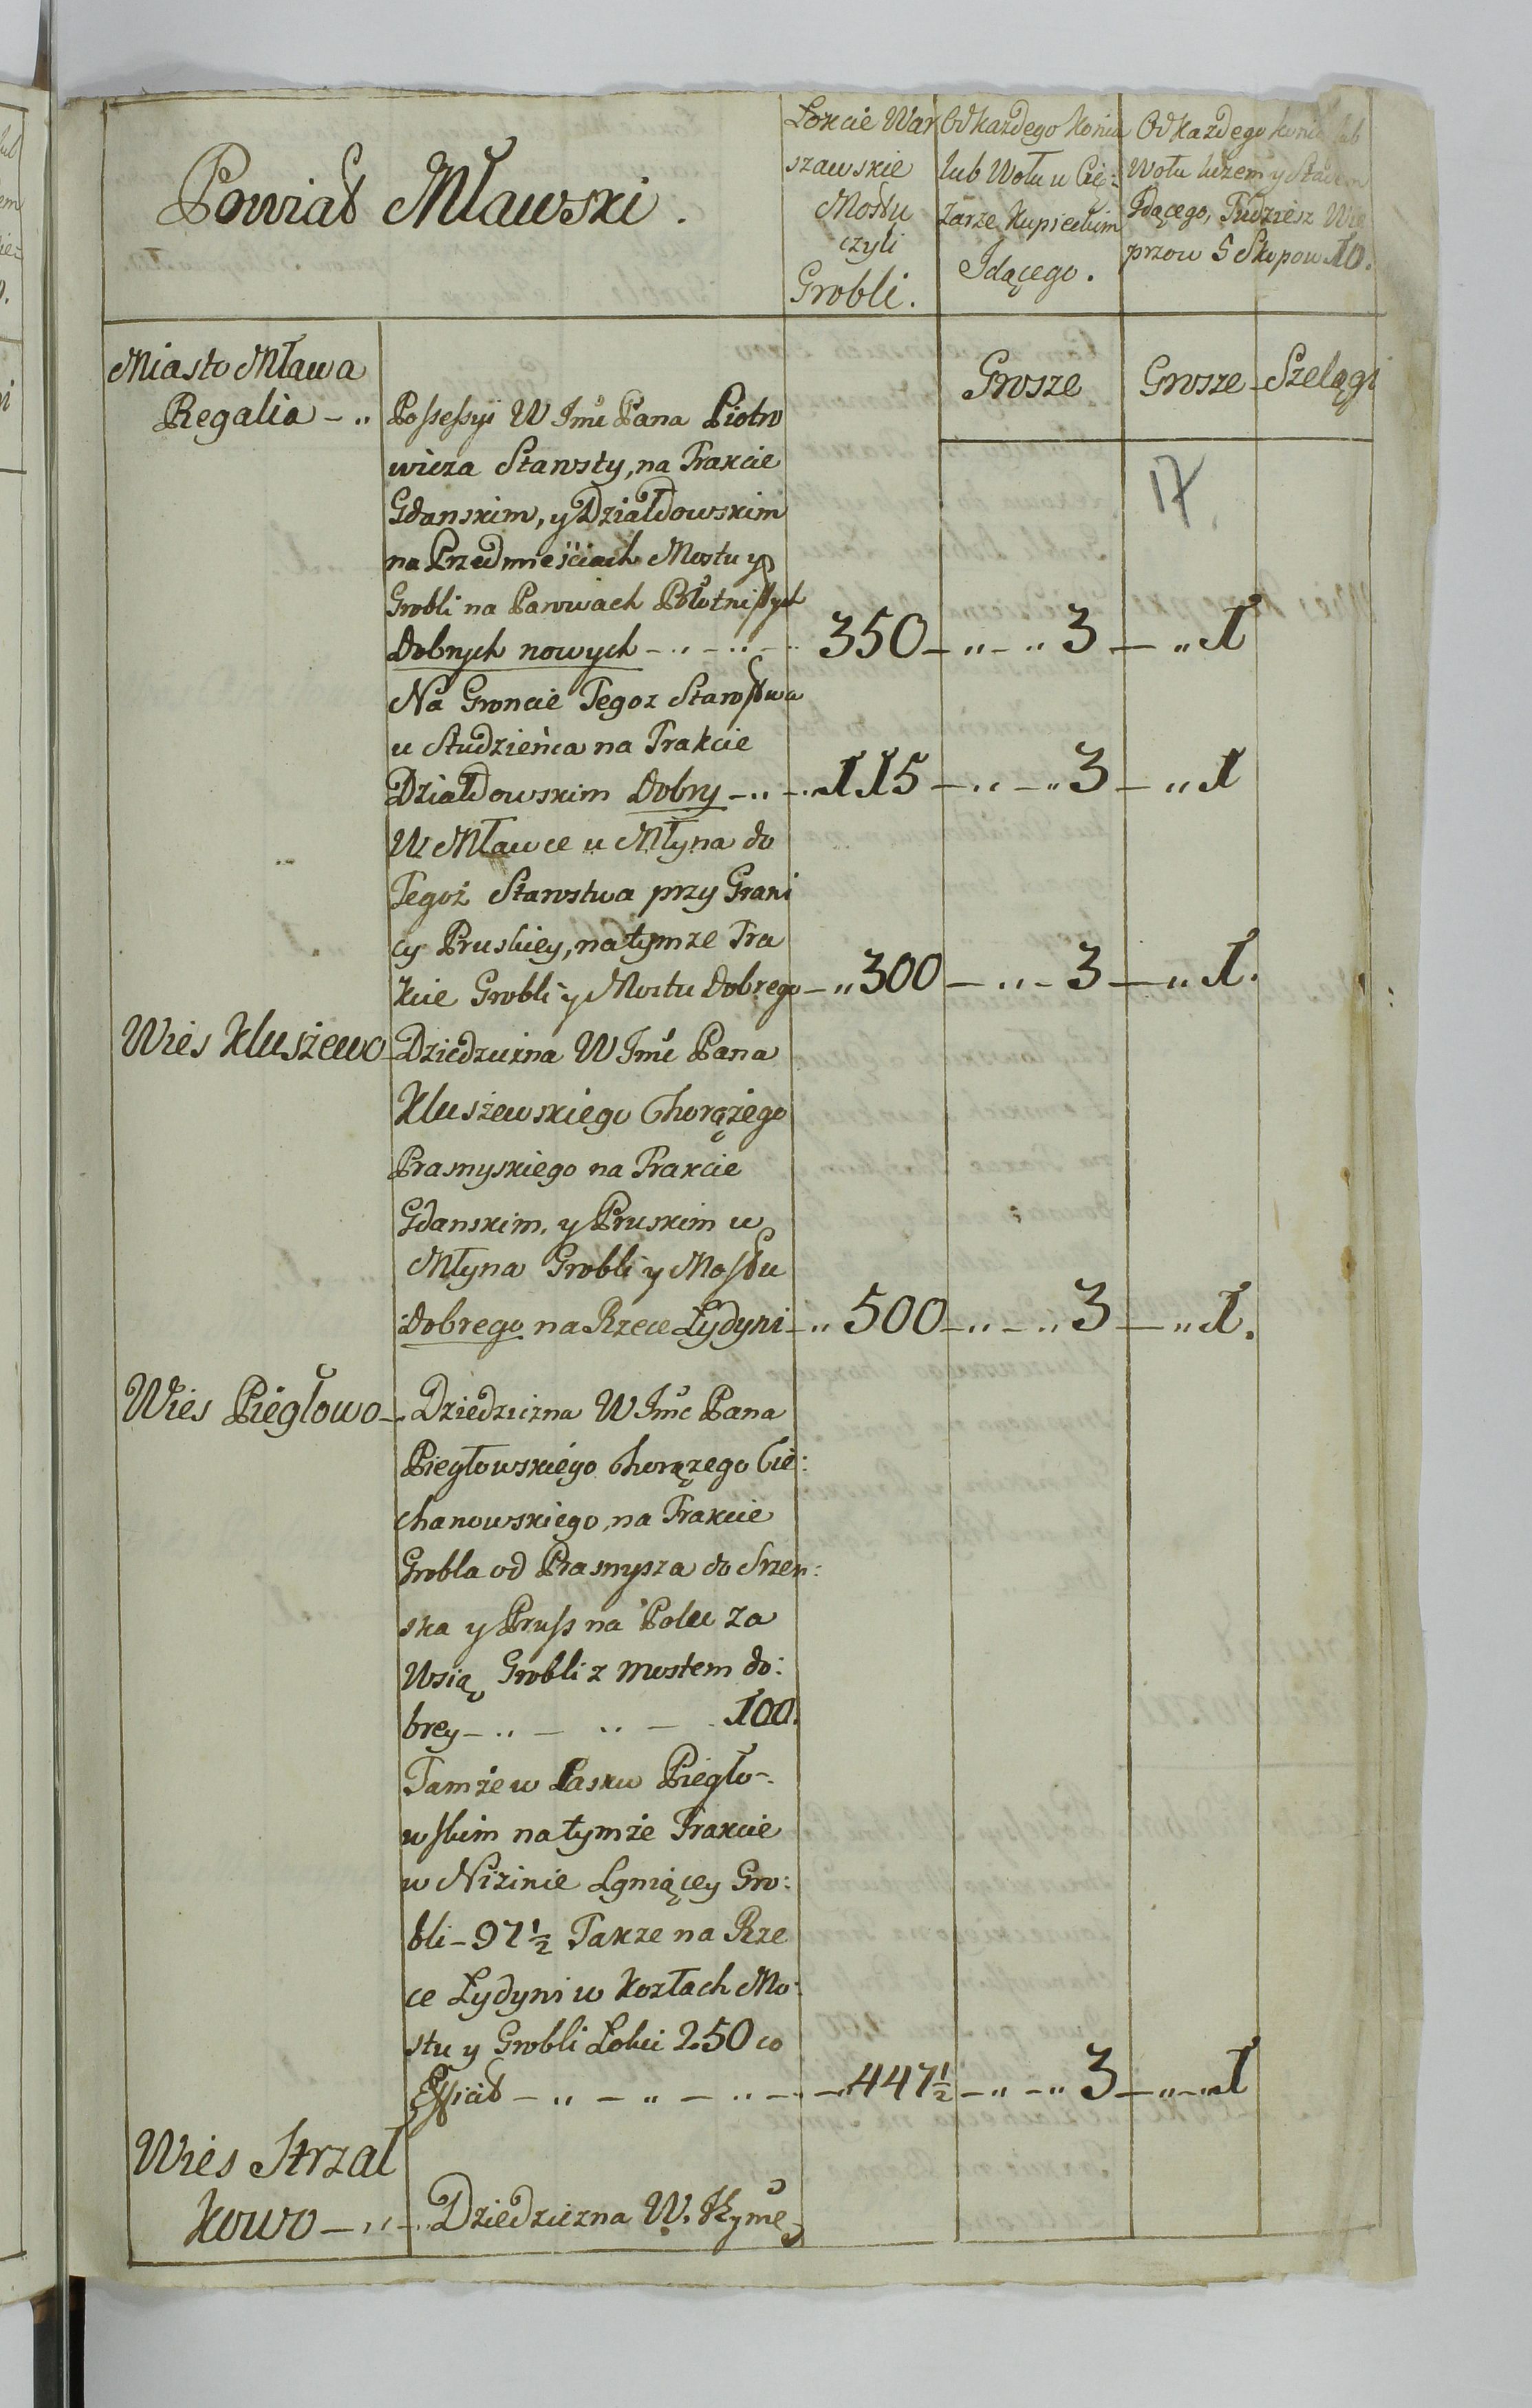 Powiat Mławski.
Łokcie War
szawskie
Mostu
czyli
Grobli.
Od każdego konia
lub Wołu w Cię:
żarze Kupieckim
Idącego.
Od każdego konia lub
Wołu luzem y Stadem
Idącego, Tudziesz Wie
przow 5 Skopow 10.
Grosze
Grosze - Szelągi
17.
Miasto Mława
Regalia - „ Possessyi W Jmć Pana Piotro
wicza Starosty, na Trakcie
Gdanskim, y Działdowskim
na Przedmieściach Mostu y
Grobli na Parowach Błotnistych
dobrych nowych - „ - „ - 350 - „ - „ 3 - „ 1
Na Groncie Tegoz Starostwa
u Studzieńca na Trakcie
Działdowskim dobry - „ - „ 115 - „ - „ 3 - „ 1
W Mławce u Młyna do
Tegoż Starostwa przy Grani
cy Pruskiey, na tymze Tra
kcie Grobli y Mostu dobrego - „ 300 - „ - 3 - „ 1.
Wieś Kluszewo - Dziedziczna W Jmć Pana
Kluszewskiego Chorążego
Prasnyskiego na Trakcie
Gdanskim, y Pruskim u
Młyna Grobli y Mostu
dobrego na Rzece Łydyni - „ 500 - „ - „ 3 - „ 1.
Wieś Piegłowo - Dziedziczna W Jmć Pana
Piegłowskiego Chorążego Cie:
chanowskiego, na Trakcie
Grobla od Prasnysza do Srzen:
ska y Pruss na Polu za
Wsią Grobli z mostem do:
brey - „ - „ - 100.
Tamże w Lasku Piegło-
wskim na tymże Trakcie
w Nizinie Lgniącey Gro:
bli - 97½ Takze na Rze
ce Łydyni w Kozłach Mo:
stu y Grobli Łokci 250 co
Efficit - „ - „ - „ - „ 447½ - „ - „ 3 - „ - „ 1
Wieś Strzał
kowo - „ - Dziedziczna W. Rymę